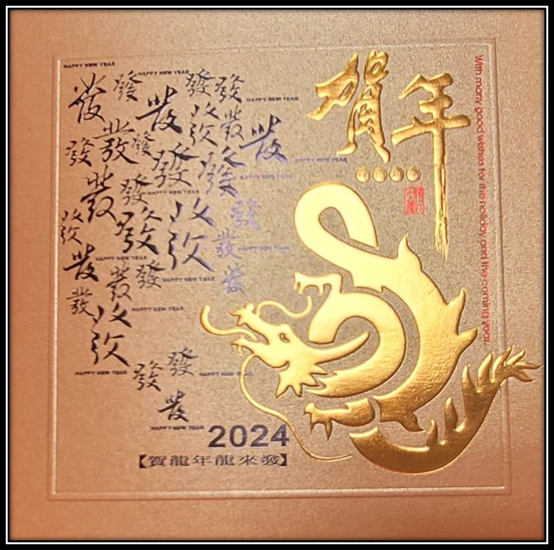 HAPPY NEW YEAR
HAPPY NEW YEAR
發 發 發 發
HAPPY NEW YEAR
發
發 發 發 發
發 發 發
HAPPY NEW YEAR
發 發 發
HAPPY NEW YEAR
發 發 發
HAPPY NEW YEAR
發 發
HAPPY NEW YEAR
發 發
HAPPY NEW YEAR
發
HAPPY NEW YEAR
發 發
發
HAPPY NEW YEAR
賀年
With many good wishes for the holiday and the coming year
2024
【賀龍年龍來發】